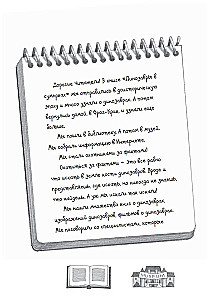 Дорогие читатели! В книге «Динозавры в
сумерках» мы отправились в доисторическую
эпоху и много узнали о динозаврах. А потом
вернулись домой, в Фрог-Крик, и узнали еще
больше.
Мы пошли в библиотеку. А потом в музей.
Мы собрали информацию в Интернете.
Мы стали охотниками за фактами!
Охотиться за фактами – это все равно
что искать в земле кости динозавров. Вроде и
представляешь, где искать, но никогда не знаешь,
что найдешь. А уж мы искали везде!
Мы нашли множество книг о динозаврах,
изображений динозавров, фильмов о динозаврах.
Мы поговорили со специалистами, которые
MUSEUM